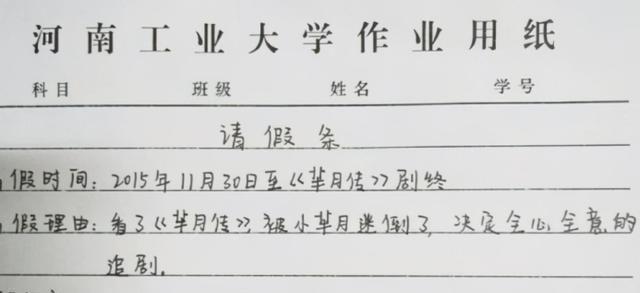 河南工业大学作业用纸
科目 班级 姓名 学号
请假条
假时间：2015年11月30日至《芈月传》剧终
假理由：看了《芈月传》，被小芈月迷倒了，决定全心全意的
追剧.